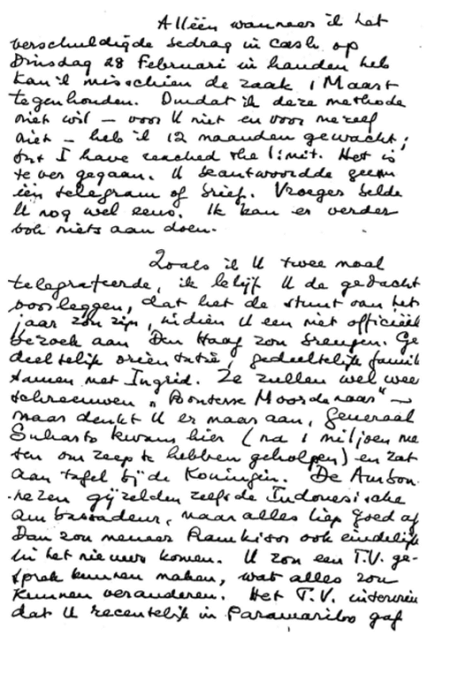 Alléén wanneer ik het
verschuldigde bedrag in cash op
Dinsdag 28 Februari in handen heb
kan ik misschien de zaak 1 Maart
tegenhouden. Omdat ik deze methode
niet wil – voor U niet en voor mezelf
niet – heb ik 12 maanden gewacht,
but I have reached the limit. Het is
te ver gegaan. U beantwoordde geen
één telegram of brief. Vroeger belde
U nog wel eens. Ik kan er verder
ook niets aan doen.
Zoals ik U twee maal
telegrafeerde, ik blijf U de gedacht
voorleggen, dat het de stunt van het
jaar zou zijn, indien U een niet officieel
bezoek aan Den Haag zou brengen. Ge
deeltelijk oriëntatie, gedeeltelijk famili
samen met Ingrid. Ze zullen wel wee
schreeuwen „Bouterse Moordenaar" –
maar denkt U er maar aan, Generaal
Suharto kwam hier (na 1 miljoen me
sen om zeep te hebben geholpen) en zat
aan tafel bij de Koningin. De Ambon
nezen gijzelden zelfs de Indonesische
ambassadeur, maar alles liep goed af
Dan zou meneer Ramkisor ook eindelijk
in het nieuws komen. U zou een T.V. ge-
sprek kunnen maken, wat alles zou
kunnen veranderen. Het T.V. interview
dat U recentelijk in Paramaribo gaf